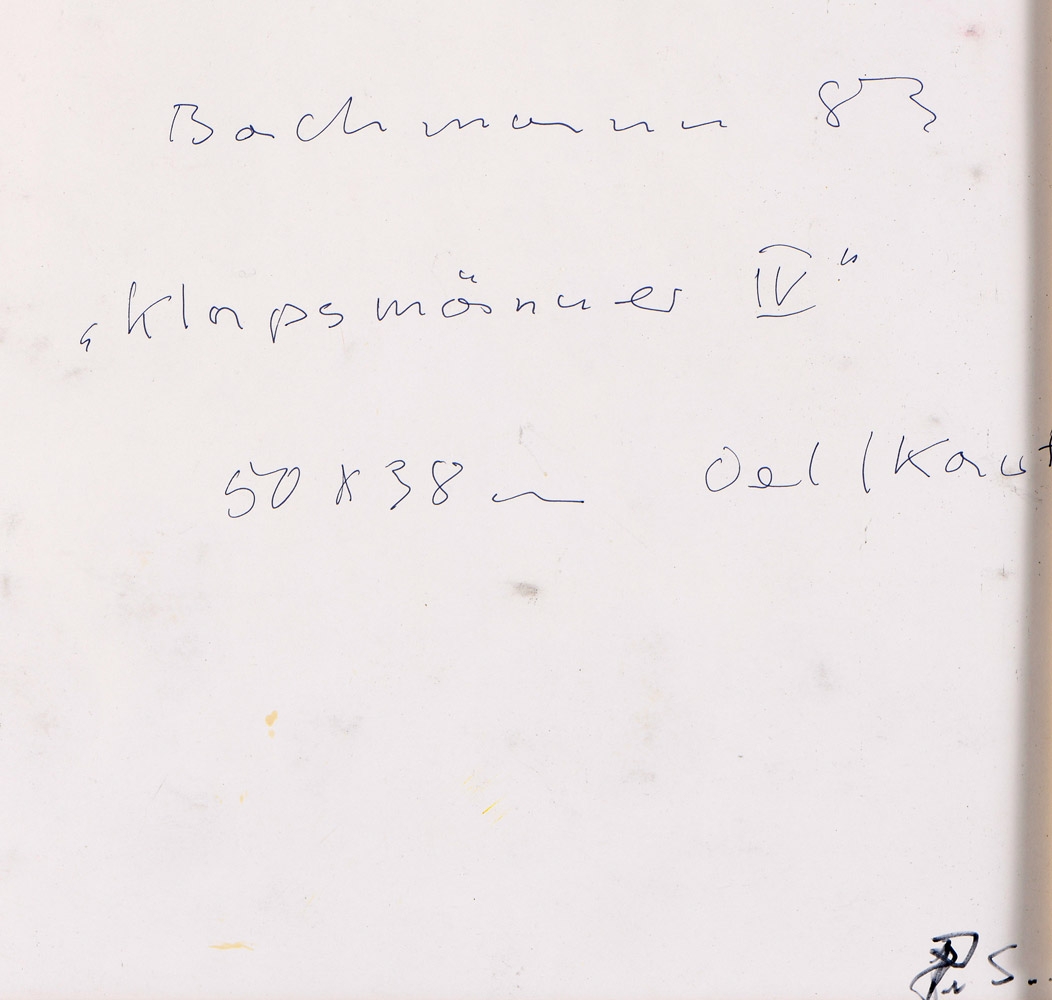 Bachmann 83
„Klapsmänner IV“
50 x 38 cm Oel / Kart